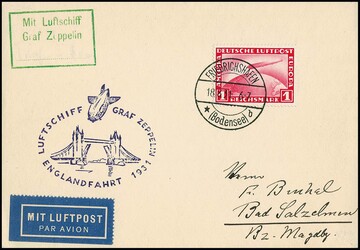 Mit Luftschiff
Graf Zeppelin
FRIEDRICHSHAFEN
18
6-7
(Bodensee)
DEUTSCHE LUFTPOST
EUROPA
EUROPA
1 REICHSMARK 1
LUFTSCHIFF GRAF ZEPPELIN
ENGLANDFAHRT 1931
Herrn
Bad Salzelmen
Bz. Magdbg.
MIT LUFTPOST
PAR AVION